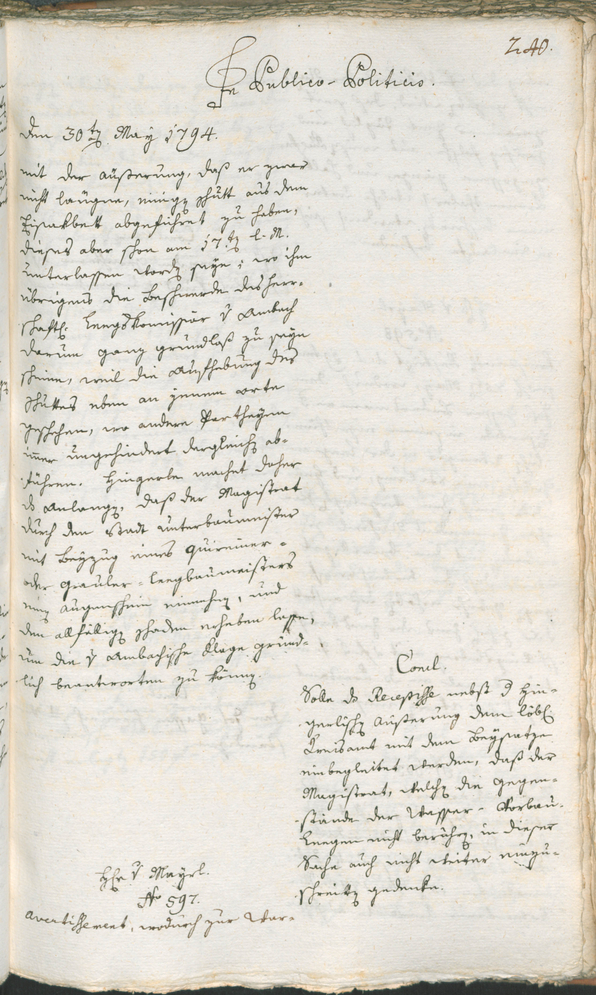 240.
In Publico-Politicis.
Den 30ten May 1794.
mit der Außerung, daß er zwar
nicht läugne, einigen Schutt aus dem
Eisackbett abgeführet zu haben,
dieses aber schon am 17ten l. M.
unterlassen worden seye; wo ihm
übrigens die Beschwerde des herr-
schaftl. Leegskommissär v Ambach
darum ganz grundlos zu seyn
scheine, weil die Aufhebung des
Schuttes eben an jenem orte
geschehen, wo andere Partheyen
immer ungehindert dergleichen ab-
führen. Hingerle machet daher
das Anlangen, daß der Magistrat
durch den Stadt unterbaumeister
mit Beyzug eines Quireiner-
oder Grauler-Leegbaumeisters
einen Augenschein einnehmen, und
den allfälligen Schaden erheben lasse,
um die v Ambachische Klage gründ-
lich beantworten zu können.
Concl.
Solle das Recepisse nebst der Hin-
gerlischen Außerung dem löbl.
Kreisamt mit dem Beysatze
einbegleitet werden, daß der
Magistrat, welchen die Gegen-
stände der Wasser-Vorbau-
Leegen nicht berühren, in dieser
Sache auch nicht weiter einzu-
schreiten gedenke.
Hhr v Mayrl.
No 597.
Avertissement, wodurch zur Ver-